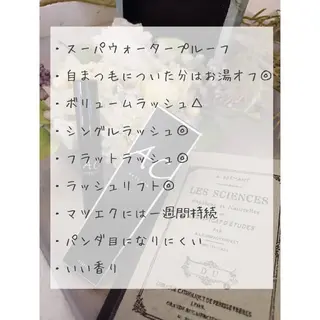 ・スーパウォータープルーフ
・自まつ毛についた分はお湯オフ◎
・ボリュームラッシュ△
・シングルラッシュ◎
・フラットラッシュ◎
・ラッシュリフト◎
・マツエクには一週間持続
・パンダ目になりにくい
・いい香り
AU
LES SCIENCES
D. U